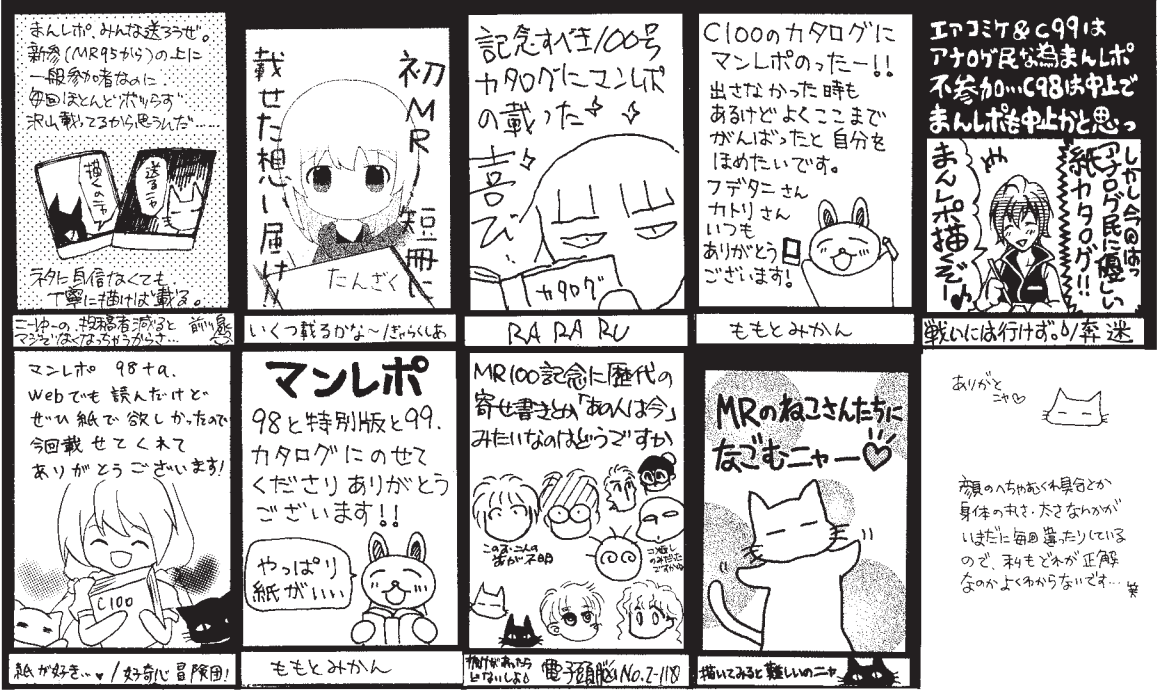 まんレポ、みんな送ろうぜ。
新参(MR95から)の上に
一般参加者なのに
毎回ほとんどボツらず
沢山載ってるから思うんだ……
描くのニャ
送るニャ
ネタに自信なくても
丁寧に描けば載る。
こーゆーの、投稿者減ると
マジでなくなっちゃうからさ…
初MR 短冊に
載せた想い届け!!
たんざく
いくつ載るかな〜/ぎゃらくしあ
記念すべき100号
カタログにマンレポ
の載った
喜び
カタログ
RA RA RU
C100のカタログに
マンレポのったー!!
出さなかった時も
あるけど よくここまで
がんばったと 自分を
ほめたいです。
フデタニさん
カトリさん
いつも
ありがとう
ございます!
ももとみかん
エアコミケ&C99は
アナログ民な為まんレポ
不参加…C98は中止で
まんレポも中止かと思っ
しかし今回はっ
アナログ民に優しい
紙カタログ!!
まんレポ描くぞー♪
戦いには行けず。/奔迷
マンレポ 98+α.
Webでも 読んだけど
ぜひ 紙で 欲しかったので
今回載せてくれて
ありがとうございます!
C100
紙が好き…♥/好奇心冒険団!
マンレポ
98と特別版と99.
カタログにのせて
くださり ありがとう
ございます!!
やっぱり
紙がいい
ももとみかん
MR100記念に歴代の
寄せ書きとか「あの人は今」
みたいなのはどうですか
電子頭脳No.Z-118
MRのねこさんたちに
なごむニャー♡
描いてみると難しいのニャ
ありがと
ニャ♡
顔のへちゃむくれ具合とか
身体の丸さ・太さなんかが
いまだに毎回違ったりしている
ので、私もどれが正解
なのかよくわからないです… 笑